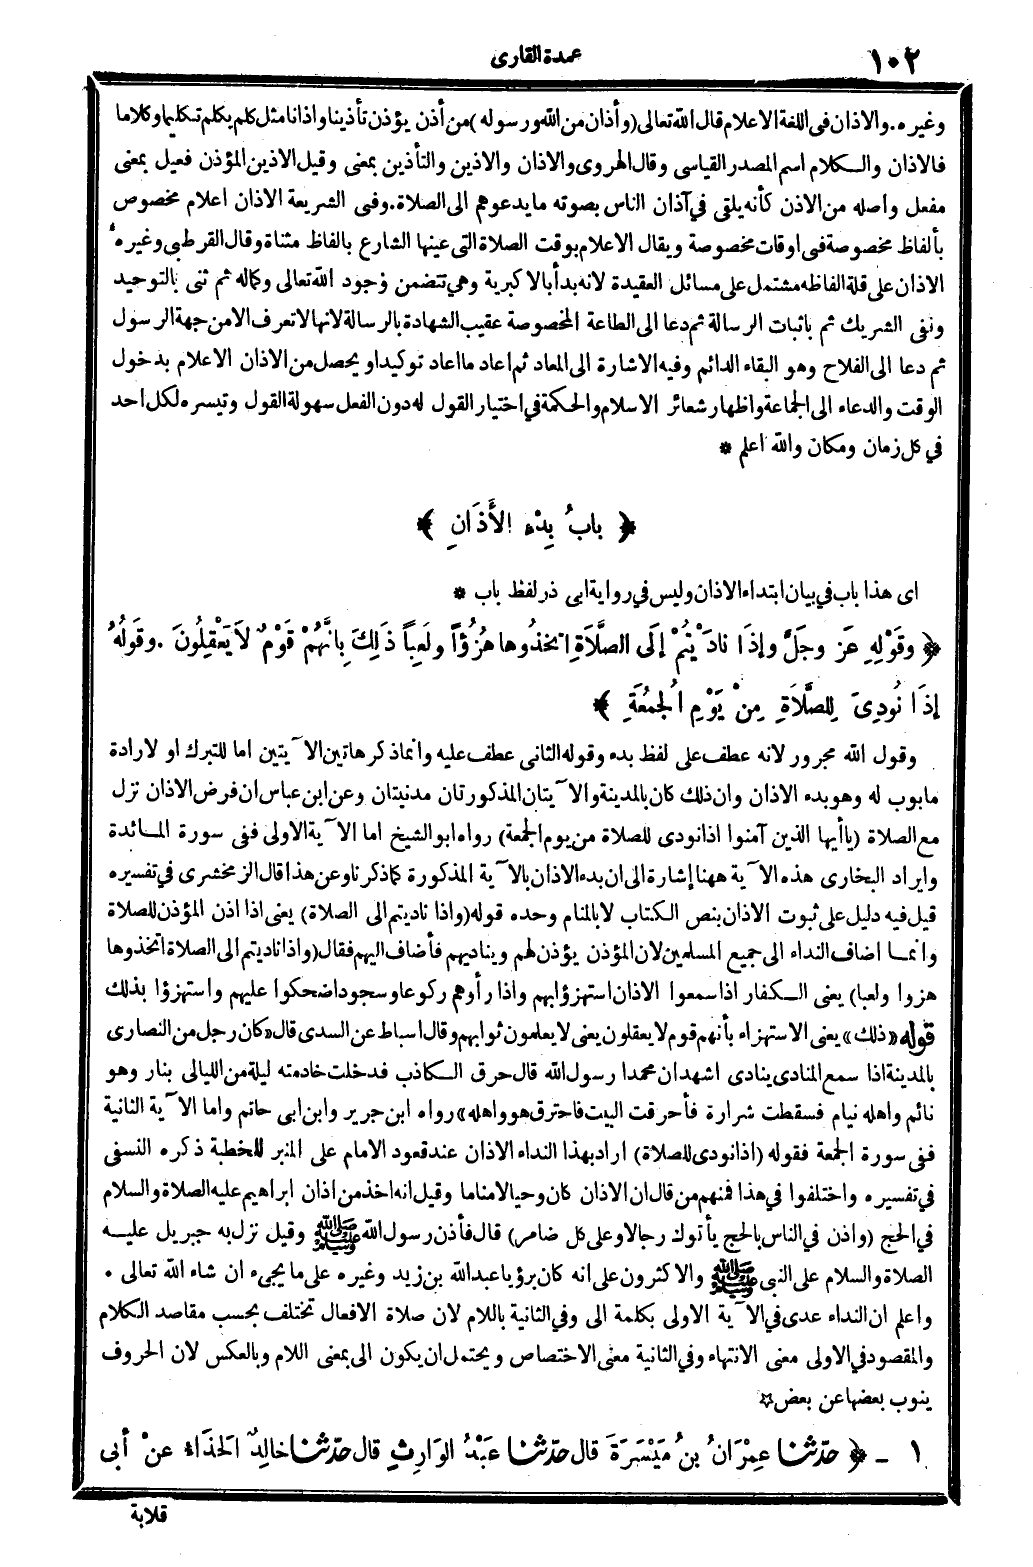 ١٠٢
عمدة القارى
وغيره. والاذان فى اللغة الاعلام قال الله تعالى (وأذان من الله ورسوله) من أذن يؤذن تأذينا واذانا مثل كلم يكلم تكليما وكلاما
فالاذان والكلام اسم المصدر القياسى وقال الهروى والاذان والاذين والتأذين بمعنى وقيل الاذين المؤذن فعيل بمعنى
مفعل واصله من الاذن كأنه يلقى في آذان الناس بصوته ما يدعوهم الى الصلاة. وفى الشريعة الاذان اعلام مخصوص
بألفاظ مخصوصة فى اوقات مخصوصة ويقال الاعلام بوقت الصلاة التى عينها الشارع بالفاظ مثناة وقال القرطبى وغيره
الاذان على قلة الفاظه مشتمل على مسائل العقيدة لانه بدأ بالاكبرية وهي تتضمن وجود الله تعالى وكماله ثم ثنى بالتوحيد
ونفى الشريك ثم باثبات الرسالة ثم دعا الى الطاعة المخصوصة عقيب الشهادة بالرسالة لانها لا تعرف الا من جهة الرسول
ثم دعا الى الفلاح وهو البقاء الدائم وفيه الاشارة الى المعاد ثم اعاد ما اعاد توكيدا ويحصل من الاذان الاعلام بدخول
الوقت والدعاء الى الجماعة واظهار شعائر الاسلام والحكمة في اختيار القول له دون الفعل سهولة القول وتيسره لكل احد
في كل زمان ومكان والله اعلم *
﴿ بابُ بِدْءِ الأَذَانِ ﴾
اى هذا باب في بيان ابتداء الاذان وليس في رواية ابى ذر لفظ باب *
﴿ وقَوْلِهِ عَزَّ وجَلَّ وإذَا نادَيْتُمْ إلَى الصَّلاَةِ اتَّخَذُوها هُزُؤًا ولَعِباً ذَلِكَ بِانَّهُمْ قَوْمٌ لاَ يَعْقِلُونَ . وقَولُهُ
إذَا نُودِىَ لِلصَّلاَةِ مِنْ يَوْمِ الجُمعَةِ ﴾
وقول الله مجرور لانه عطف على لفظ بدء وقوله الثانى عطف عليه وانما ذكر هاتين الآيتين اما للتبرك او لارادة
ما بوب له وهو بدء الاذان وان ذلك كان بالمدينة والآيتان المذكورتان مدنيتان وعن ابن عباس ان فرض الاذان نزل
مع الصلاة (يا أيها الذين آمنوا اذا نودى للصلاة من يوم الجمعة) رواه ابو الشيخ اما الآية الاولى ففى سورة المائدة
وايراد البخارى هذه الآية ههنا إشارة الى ان بدء الاذان بالآية المذكورة كما ذكرنا وعن هذا قال الزمخشرى في تفسيره
قيل فيه دليل على ثبوت الاذان بنص الكتاب لا بالمنام وحده قوله (واذا ناديتم الى الصلاة) يعنى اذا اذن المؤذن للصلاة
وانما اضاف النداء الى جميع المسلمين لان المؤذن يؤذن لهم ويناديهم فأضاف اليهم فقال (واذا ناديتم الى الصلاة اتخذوها
هزوا ولعبا) يعنى الكفار اذا سمعوا الاذان استهزؤا بهم واذا رأوهم ركوعا وسجودا ضحكوا عليهم واستهزؤا بذلك
قوله «ذلك» يعنى الاستهزاء بأنهم قوم لا يعقلون يعنى لا يعلمون ثوابهم وقال اسباط عن السدى قال «كان رجل من النصارى
بالمدينة اذا سمع المنادى ينادى اشهد ان محمدا رسول الله قال حرق الكاذب فدخلت خادمته ليلة من الليالى بنار وهو
نائم واهله نيام فسقطت شرارة فأحرقت البيت فاحترق هو واهله» رواه ابن جرير وابن ابى حاتم واما الآية الثانية
ففى سورة الجمعة فقوله (اذا نودى للصلاة) اراد بهذا النداء الاذان عند قعود الامام على المنبر للخطبة ذكره النسفى
في تفسيره واختلفوا في هذا فمنهم من قال ان الاذان كان وحيا لا مناما وقيل انه اخذ من اذان ابراهيم عليه الصلاة والسلام
في الحج (واذن في الناس بالحج يأتوك رجالا وعلى كل ضامر) قال فأذن رسول الله ﷺ وقيل نزل به جبريل عليه
الصلاة والسلام على النبى ﷺ والاكثرون على انه كان برؤيا عبد الله بن زيد وغيره على ما يجىء ان شاء الله تعالى .
واعلم ان النداء عدى في الآية الاولى بكلمة الى وفي الثانية باللام لان صلاة الافعال تختلف بحسب مقاصد الكلام
والمقصود في الاولى معنى الانتهاء وفي الثانية معنى الاختصاص ويحتمل ان يكون الى بمعنى اللام وبالعكس لان الحروف
ينوب بعضها عن بعض ☆
١ - ﴿ حدّثنا عِمْرَانُ بنُ مَيْسَرَةَ قال حدّثنا عَبْدُ الوَارِثِ قال حدّثنا خالِدٌ الحَذَّاءُ عنْ أبى
قلابة